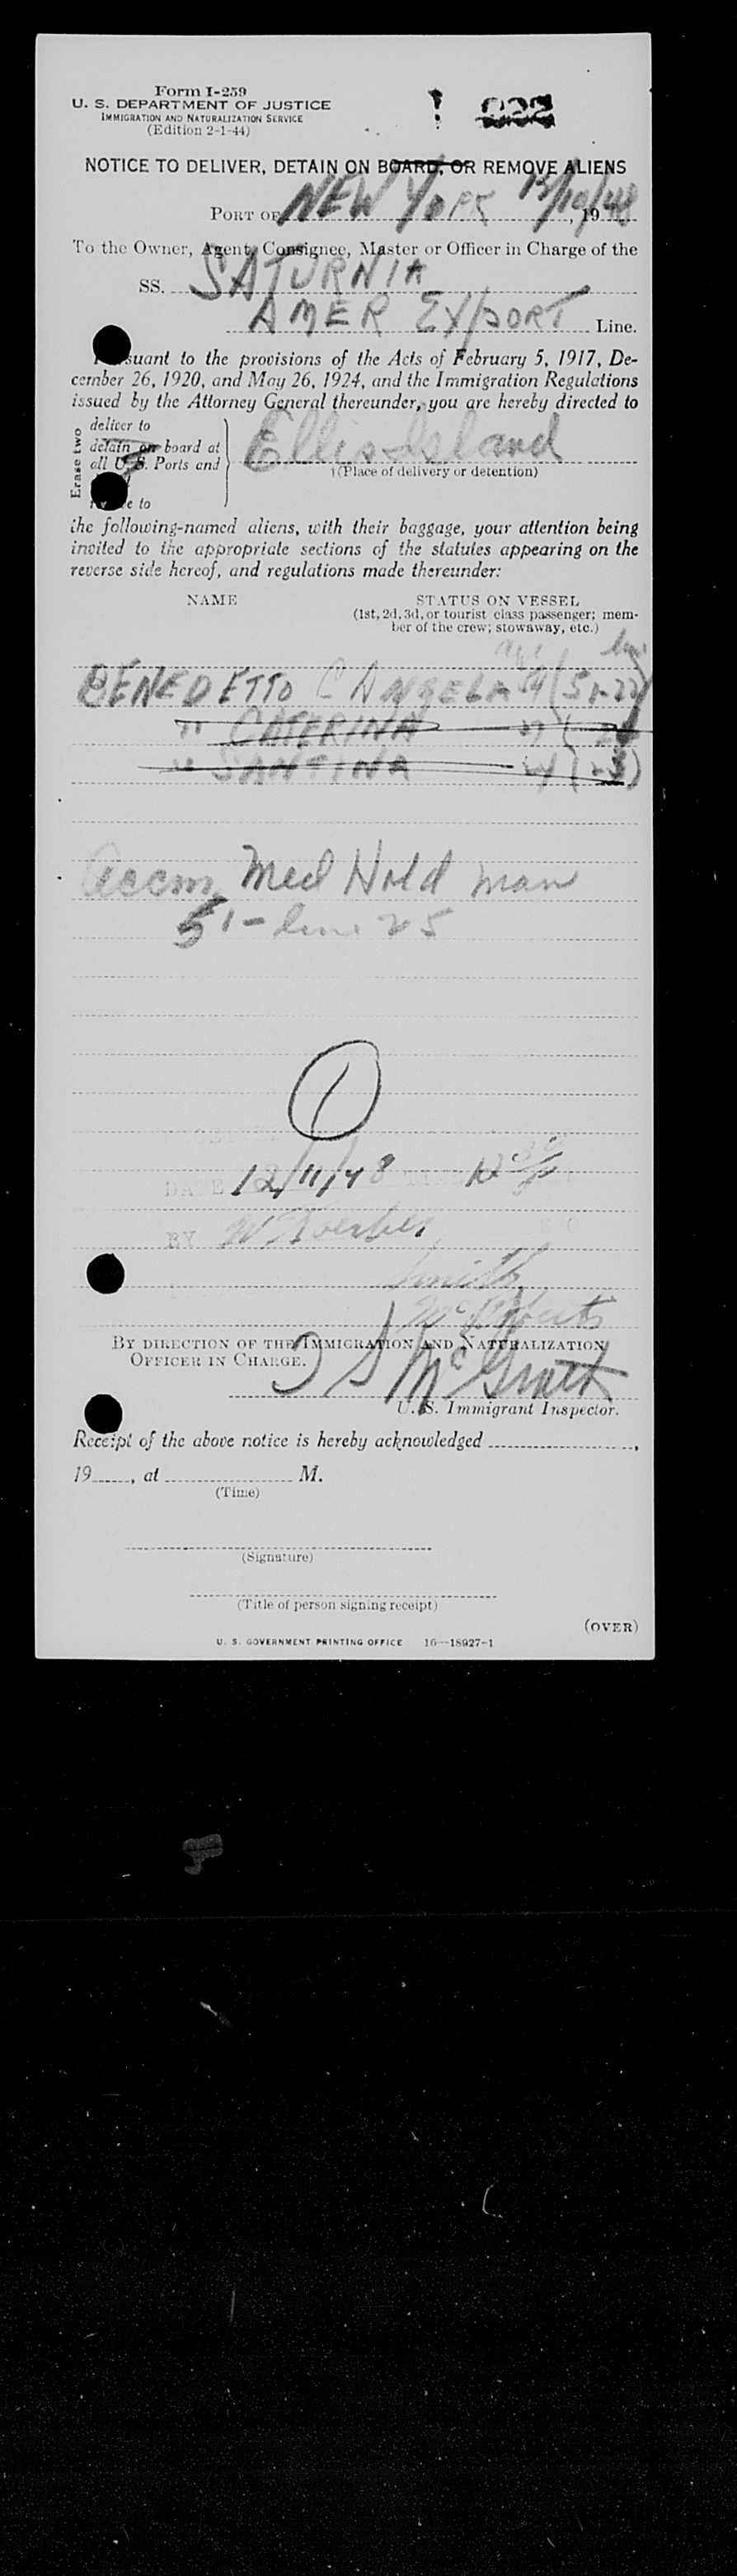 Form I-259
U. S. DEPARTMENT OF JUSTICE
IMMIGRATION AND NATURALIZATION SERVICE
(Edition 2-1-44)
NOTICE TO DELIVER, DETAIN ON BOARD, OR REMOVE ALIENS
PORT OF NEW YORK 12/10/48, 19
To the Owner, Agent, Consignee, Master or Officer in Charge of the
SS. SATURNIA
AMER EXPORT Line.
Pursuant to the provisions of the Acts of February 5, 1917, De-
cember 26, 1920, and May 26, 1924, and the Immigration Regulations
issued by the Attorney General thereunder, you are hereby directed to
Erase two
deliver to
detain on board at
all U. S. Ports and
to
Ellis Island
(Place of delivery or detention)
the following-named aliens, with their baggage, your attention being
invited to the appropriate sections of the statutes appearing on the
reverse side hereof, and regulations made thereunder:
NAME STATUS ON VESSEL
(1st, 2d, 3d, or tourist class passenger; mem-
ber of the crew; stowaway, etc.)
BENEDETTO C ANGELA 54
" CATERINA
" SANTINA
accm. Med Hold man
51 - line 25
1
DATE 12/11/48 TIME
BY W
Smith
BY DIRECTION OF THE IMMIGRATION AND NATURALIZATION
OFFICER IN CHARGE.
McGrath
U. S. Immigrant Inspector.
Receipt of the above notice is hereby acknowledged ,
19 , at M.
(Time)
(Signature)
(Title of person signing receipt)
(OVER)
U. S. GOVERNMENT PRINTING OFFICE 16—18927-1